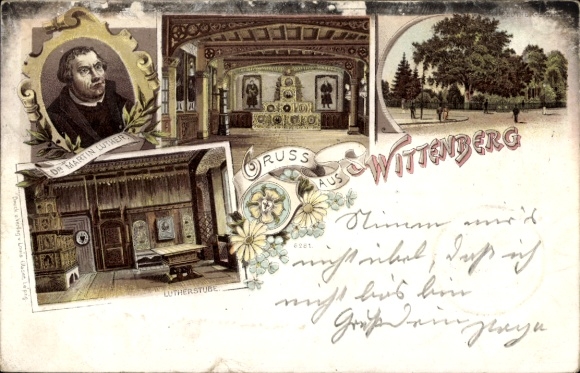 DR MARTIN LUTHER
GRUSS
AUS
WITTENBERG
LUTHERSTUBE
Nimm mir's
nicht übel, daß ich
nicht bös bin
Gruß Dein